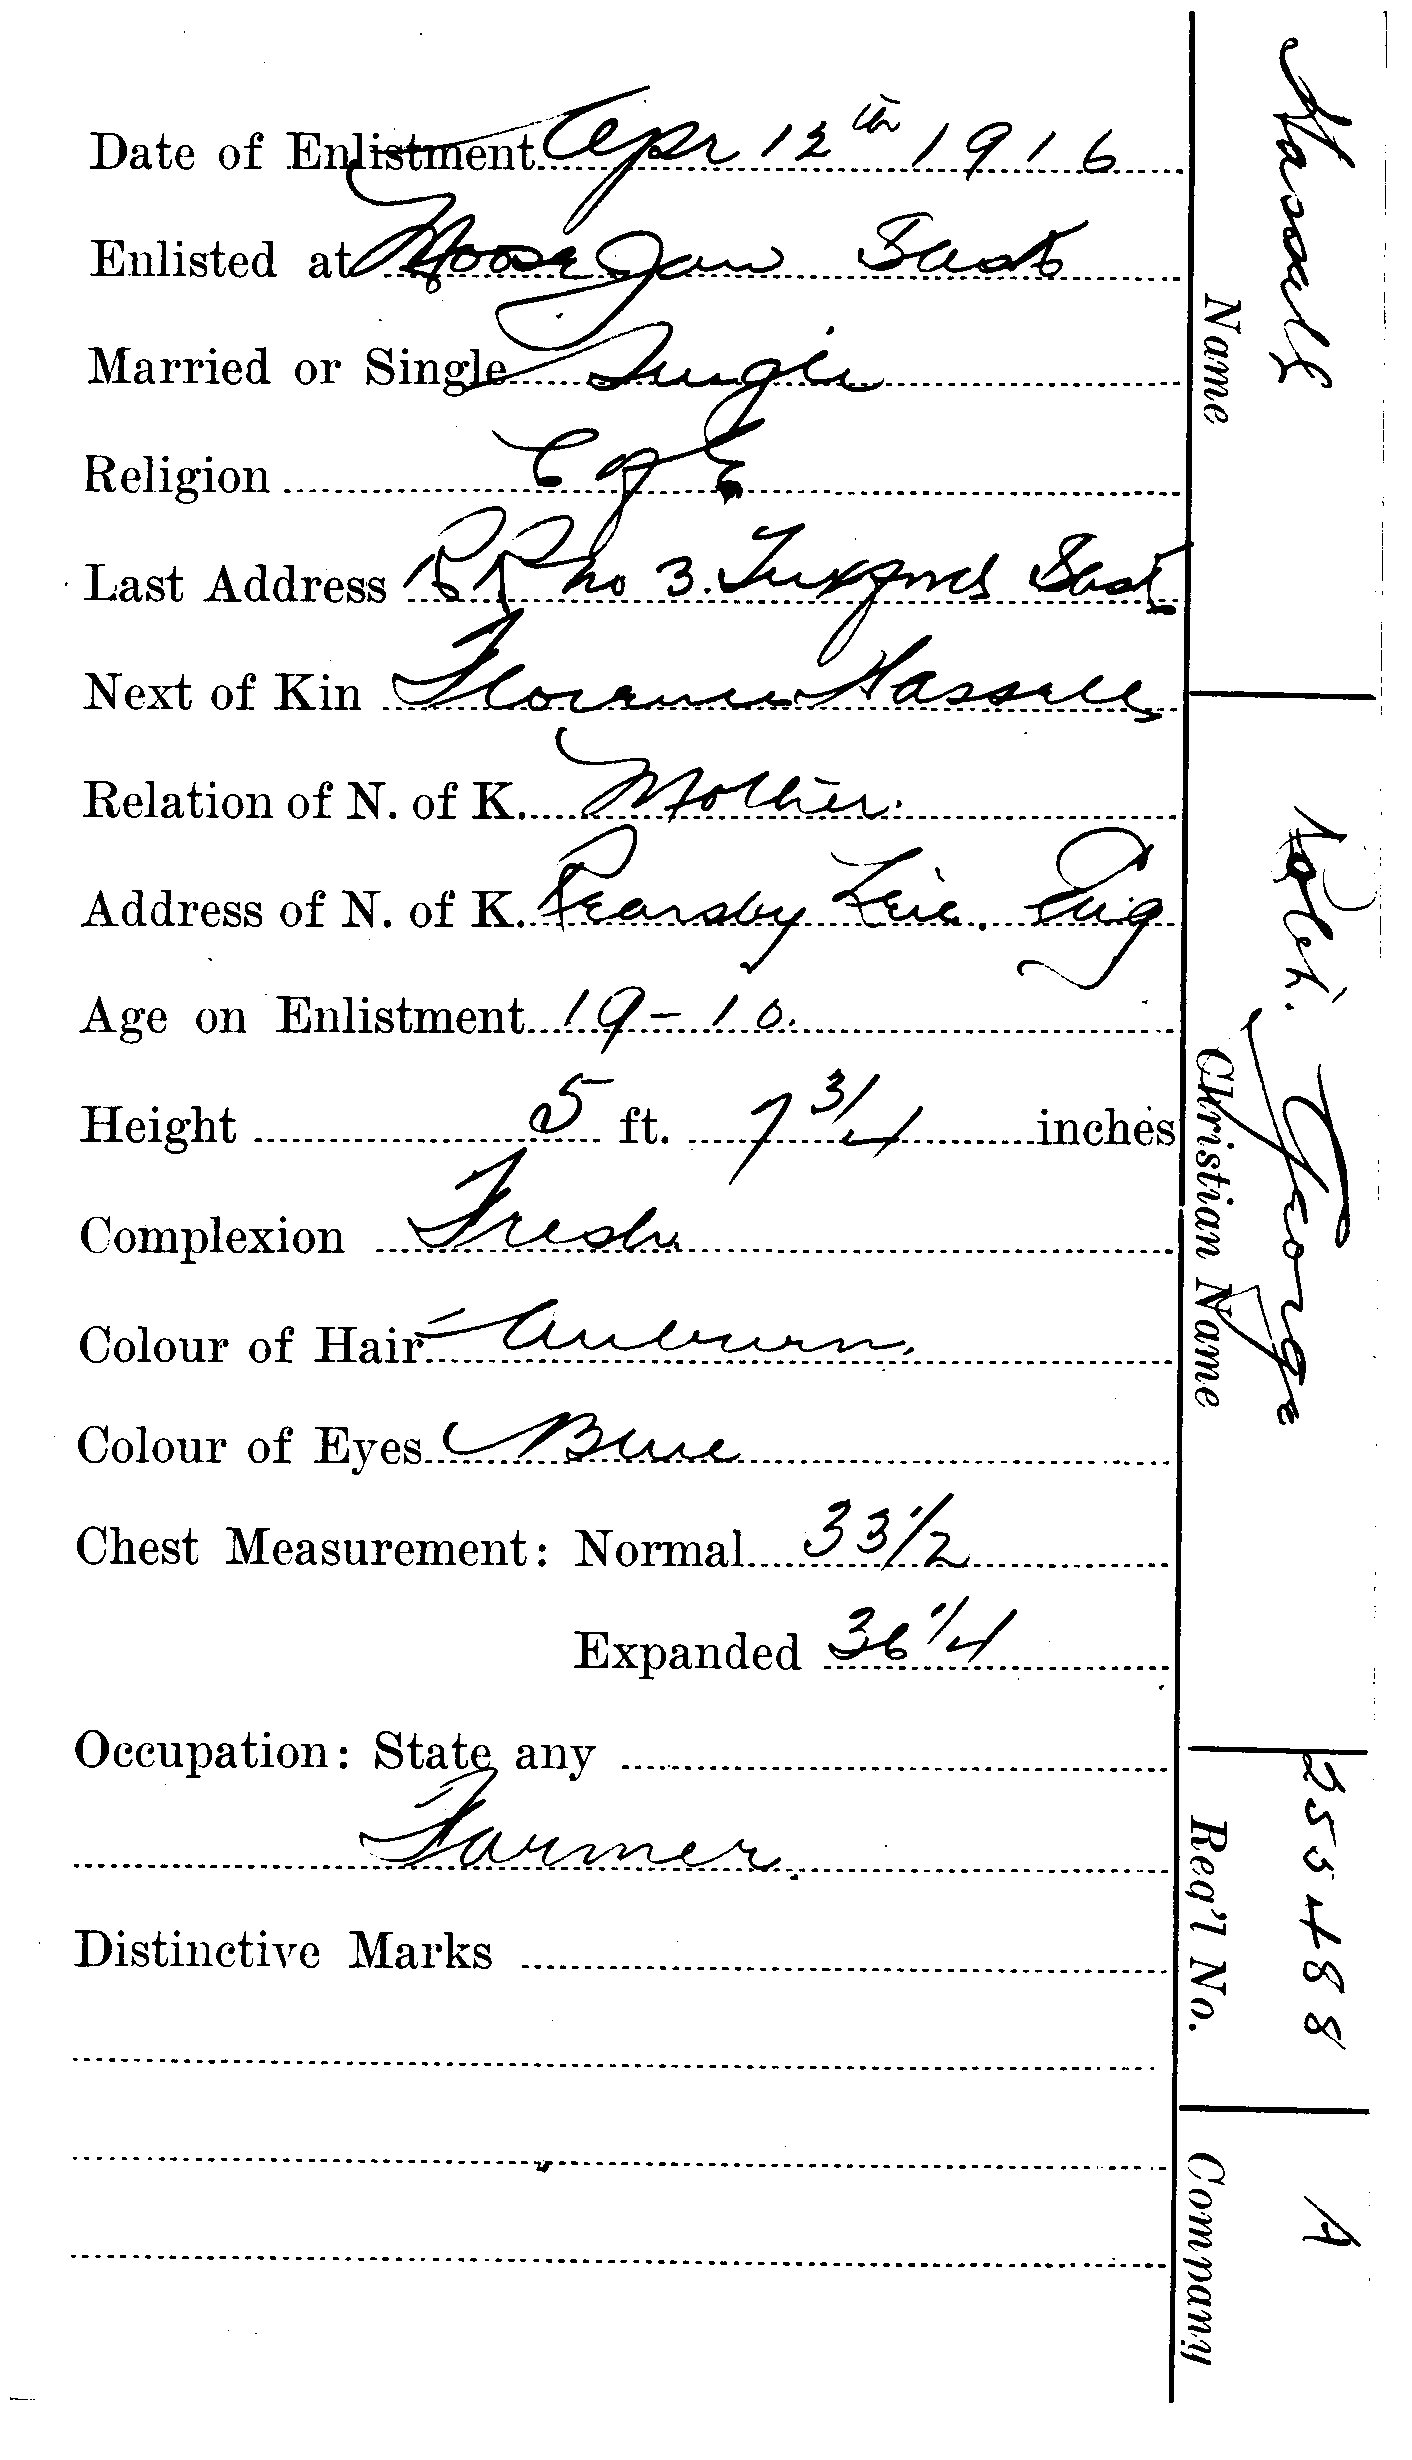 Date of Enlistment Apr 12th 1916
Enlisted at Moose Jaw Sask
Married or Single Single
Religion C of E
Last Address RR No 3. Tuxford Sask
Next of Kin Florence Hassall
Relation of N. of K. Mother.
Address of N. of K. Pearsby Leic. Eng
Age on Enlistment 19-10.
Height 5 ft. 7 3/4 inches
Complexion Fresh
Colour of Hair Auburn.
Colour of Eyes Blue
Chest Measurement: Normal 33 1/2
Expanded 36 1/4
Occupation: State any
Farmer.
Distinctive Marks
Hassall
Name
Robt. George
Christian Name
255488
Reg'l No.
A
Company